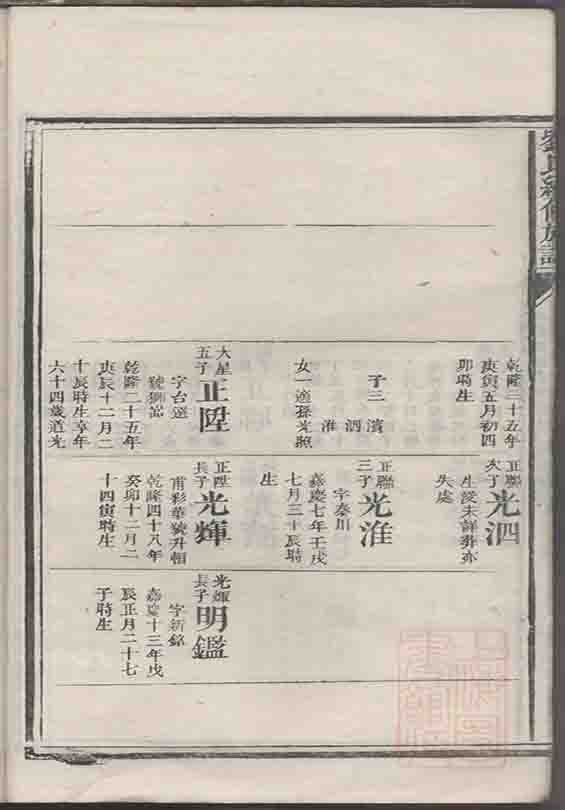 劉氏續修族譜
乾隆三十五年
庚寅五月初四
卯時生
子三
濱
泗
淮
女一適孫光照
大星
五子
正陞
字台選
乾隆二十五年
庚辰十二月二
十辰時生享年
六十四歲道光
正聯
次子
光泗
生歿未詳葬亦
失處
正聯
三子
光淮
字秦川
嘉慶七年壬戌
七月三十辰時
生
正陞
長子
光輝
甫彩華號升恒
乾隆四十八年
癸卯十二月二
十四寅時生
光輝
長子
明鑑
字新銘
嘉慶十三年戊
辰正月二十七
子時生